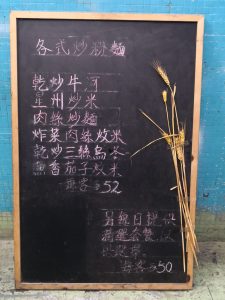 各式炒粉麵
乾炒牛河
星州炒米
肉絲炒麵
炸菜肉絲炆米
乾炒三絲烏冬
魚香茄子炆米
每客$52
另設日提供
每客$50